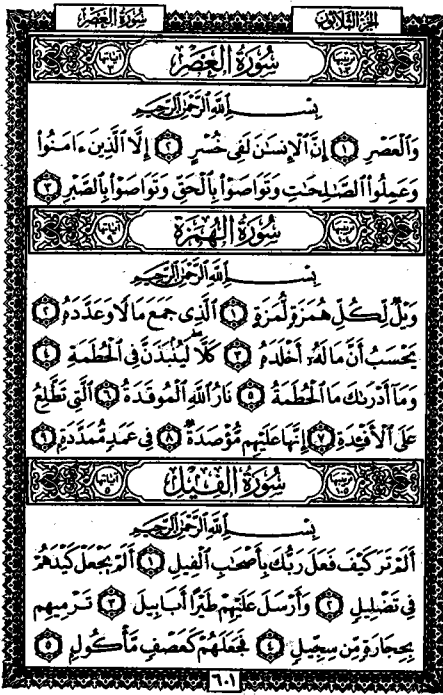 سُورَةُ العَصْرِ
الجُزءُ الثَّلَاثُونَ
سُورَةُ العَصْرِ
بِسْمِ ٱللَّهِ ٱلرَّحْمَٰنِ ٱلرَّحِيمِ
وَٱلْعَصْرِ ١ إِنَّ ٱلْإِنسَٰنَ لَفِى خُسْرٍ ٢ إِلَّا ٱلَّذِينَ ءَامَنُوا۟
وَعَمِلُوا۟ ٱلصَّٰلِحَٰتِ وَتَوَاصَوْا۟ بِٱلْحَقِّ وَتَوَاصَوْا۟ بِٱلصَّبْرِ ٣
سُورَةُ الهُمَزَةِ
بِسْمِ ٱللَّهِ ٱلرَّحْمَٰنِ ٱلرَّحِيمِ
وَيْلٌ لِّكُلِّ هُمَزَةٍ لُّمَزَةٍ ١ ٱلَّذِى جَمَعَ مَالًا وَعَدَّدَهُۥ ٢
يَحْسَبُ أَنَّ مَالَهُۥٓ أَخْلَدَهُۥ ٣ كَلَّا لَيُنۢبَذَنَّ فِى ٱلْحُطَمَةِ ٤
وَمَآ أَدْرَىٰكَ مَا ٱلْحُطَمَةُ ٥ نَارُ ٱللَّهِ ٱلْمُوقَدَةُ ٦ ٱلَّتِى تَطَّلِعُ
عَلَى ٱلْأَفْـِٔدَةِ ٧ إِنَّهَا عَلَيْهِم مُّؤْصَدَةٌ ٨ فِى عَمَدٍ مُّمَدَّدَةٍۭ ٩
سُورَةُ الفِيلِ
بِسْمِ ٱللَّهِ ٱلرَّحْمَٰنِ ٱلرَّحِيمِ
أَلَمْ تَرَ كَيْفَ فَعَلَ رَبُّكَ بِأَصْحَٰبِ ٱلْفِيلِ ١ أَلَمْ يَجْعَلْ كَيْدَهُمْ
فِى تَضْلِيلٍ ٢ وَأَرْسَلَ عَلَيْهِمْ طَيْرًا أَبَابِيلَ ٣ تَرْمِيهِم
بِحِجَارَةٍ مِّن سِجِّيلٍ ٤ فَجَعَلَهُمْ كَعَصْفٍ مَّأْكُولٍۭ ٥
٦٠١